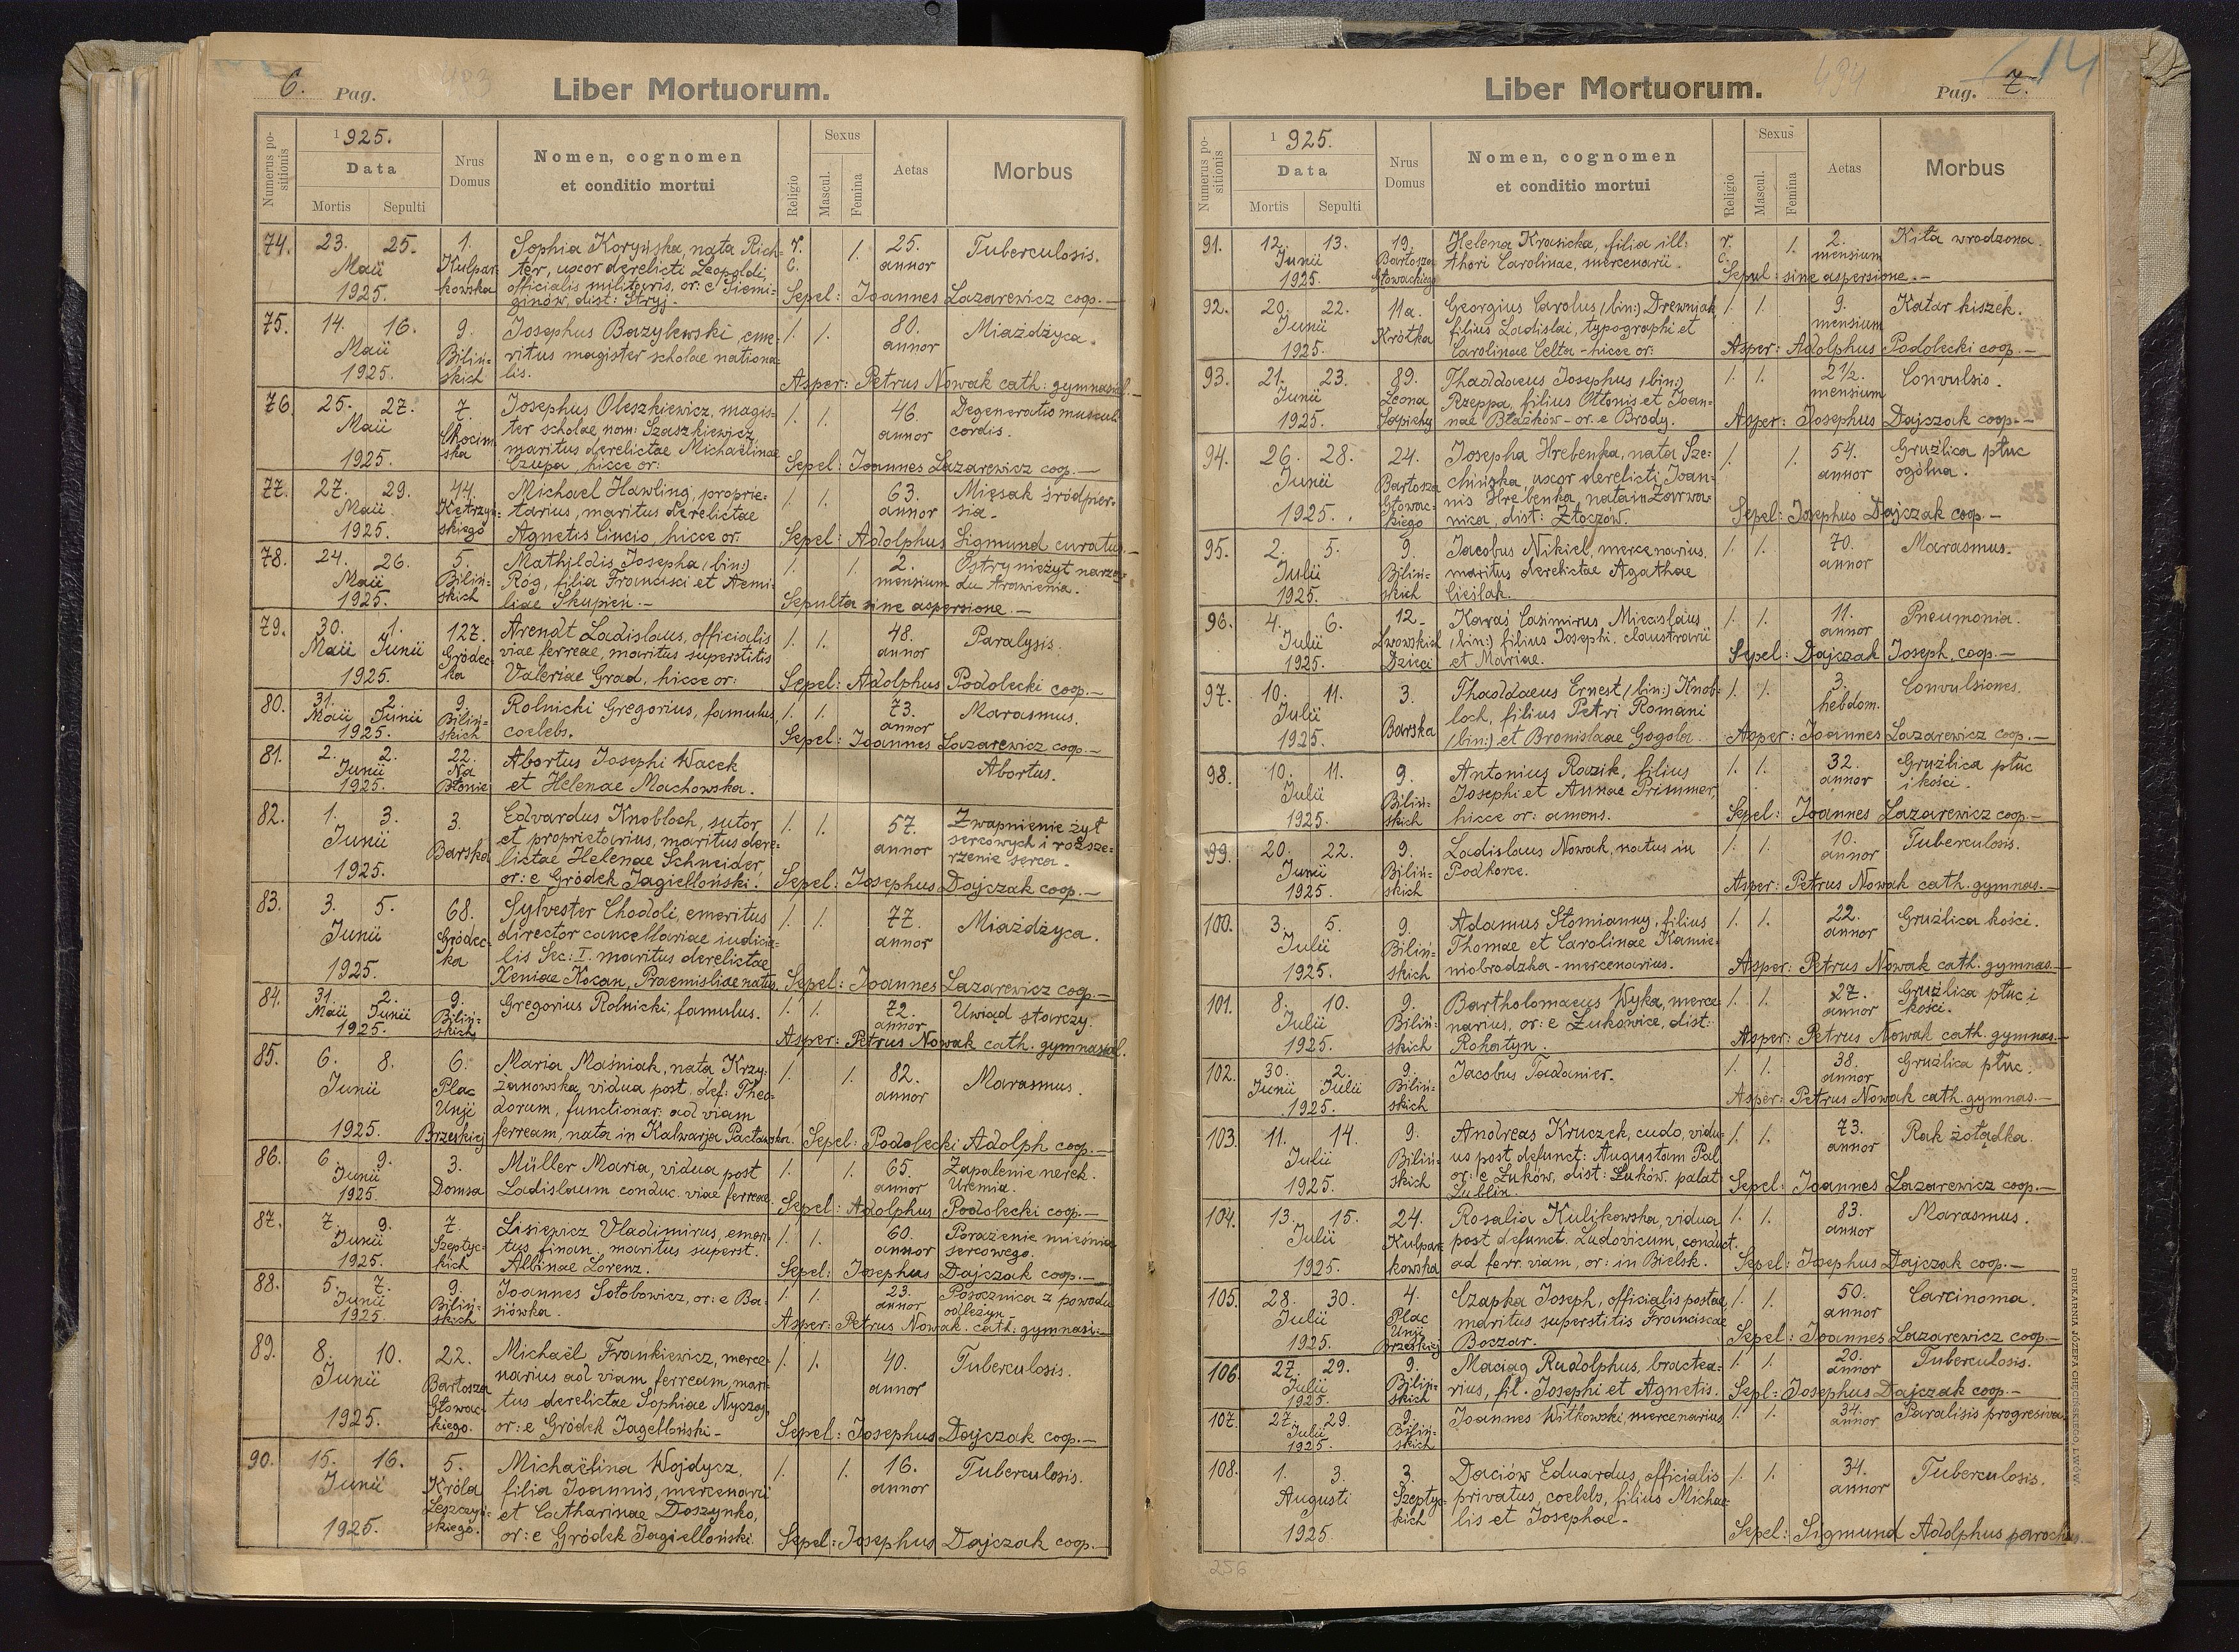 6. Pag.
Liber Mortuorum.
Numerus positionis
1925.
Data
Mortis Sepulti
Nrus Domus
Nomen, cognomen
et conditio mortui
Religio
Sexus
Mascul.
Femina
Aetas
Morbus
74. 23. 25. 1. Sophia Koryńska, nata Rich= r. 1. 25. Tuberculosis.
Maii Kulpar= ter, uxor derelicti Leopoldi, c. annor
kowska officialis militaris, or: e Siemi=
1925. ginów, dist: Stryj. Sepel: Joannes Lazarewicz coop.—
75. 14. 16. 9. Josephus Bazylewski, eme= 1. 1. 80. Miażdżyca.
Maii Biliń= ritus magister scholae nationa= annor
1925. skich lis. Asper: Petrus Nowak cath: gymnasial.—
76. 25. 27. 7. Josephus Oleszkiewicz, magis= 1. 1. 46. Degeneratio musculi
Maii Chocim ter scholae nom: Szaszkiewicz, annor cordis.
ska maritus derelictae Michaëlinae
1925. Czupa, hicce or: Sepel: Joannes Lazarewicz coop.—
77. 27. 29. 44. Michael Hawling, proprie= 1. 1. 63. Mięsak śródpier=
Maii Kętrzyń= tarius, maritus derelictae annor sia.
1925. skiego Agnetis Ciucio, hicce or: Sepel: Adolphus Sigmund curatus.—
78. 24. 26. 5. Mathildis Josepha (bin:) 1. 1. 2. Ostry nieżyt narzą=
Maii Biliń= Róg, filia Francisci et Aemi= mensium du trawienia.
1925. skich liae Skupień.— Sepulta sine aspersione.—
79. 30. 1. 127. Arendt Ladislaus, officialis 1. 1. 48. Paralysis.
Maii Junii Gródec= viae ferreae, maritus superstitis annor
1925. ka Valeriae Grad, hicce or: Sepel: Adolphus Podolecki coop.—
80. 31. 2. 9. Rolnicki Gregorius, famulus, 1. 1. 73. Marasmus.
Maii Junii Biliń= coelebs. annor
1925. skich Sepel: Joannes Lazarewicz coop.—
81. 2. 2. 22. Abortus Josephi Wacek Abortus.
Junii Na et Helenae Machowska.
1925. Błonie
82. 1. 3. 3. Edvardus Knobloch, sutor 1. 1. 57. Zwapnienie żył
Junii Barska et proprietarius, maritus dere= annor sercowych i rozsze=
lictae Helenae Schneider, rzenie serca.
1925. or: e Gródek Jagielloński. Sepel: Josephus Dajczak coop.—
83. 3. 5. 68. Sylvester Chodoli, emeritus 1. 1. 77. Miażdżyca.
Junii Gródec= director cancellariae iudicia= annor
ka lis Sec: I. maritus derelictae
1925. Xeniae Kocan, Praemisliae natus. Sepel: Joannes Lazarewicz coop.—
84. 31. 2. 9. Gregorius Rolnicki, famulus. 1. 1. 72. Uwiąd starczy.
Maii Junii Biliń= annor
1925. skich Asper: Petrus Nowak cath. gymnasial.
85. 6. 8. 6. Maria Maśniak, nata Krzy= 1. 1. 82. Marasmus.
Junii Plac żanowska, vidua post. def: Theo= annor
Unji dorum, functionar: ad viam
1925. Brzeskiej ferream, nata in Kalwarja Pacławska. Sepel: Podolecki Adolph coop.—
86. 6. 9. 3. Müller Maria, vidua post 1. 1. 65. Zapalenie nerek.
Junii Domsa Ladislaum conduc. viae ferreae. annor Uremia.
1925. Sepel: Adolphus Podolecki coop.—
87. 7. 9. 7. Lisiewicz Vladimirus, emeri= 1. 1. 60. Porażenie mięśnia
Junii Szeptyc= tus finan. maritus superst. annor sercowego.
1925. kich Albinae Lorenz. Sepel: Josephus Dajczak coop.—
88. 5. 7. 9. Joannes Sołobowicz, or: e Ba= 1. 1. 23. Posocznica z powodu
Junii Biliń= siówka. annor odleżyn.
1925. skich Asper: Petrus Nowak. cath: gymnasi:—
89. 8. 10. 22. Michaël Frankiewicz, merce= 1. 1. 40. Tuberculosis.
Junii Bartosza narius ad viam ferream, mari= annor
Głowac= tus derelictae Sophiae Nyczaj,
1925. kiego. or: e Gródek Jagielloński— Sepel: Josephus Dajczak coop.—
90. 15. 16. 5. Michaëlina Wojdycz, 1. 1. 16. Tuberculosis.
Junii Króla filia Joannis, mercenarii annor
Leszczyń= et Catharinae Doszynko,
1925. skiego. or: e Gródek Jagielloński. Sepel: Josephus Dajczak coop.—
Liber Mortuorum.
Pag. 7.
14
Numerus positionis
1925.
Data
Mortis Sepulti
Nrus Domus
Nomen, cognomen
et conditio mortui
Religio
Sexus
Mascul.
Femina
Aetas
Morbus
91. 12. 13. 19. Helena Krasicka, filia ill: r. 1. 2. Kiła wrodzona.
Junii Bartosza thori Carolinae, mercenarii. c. mensium
1925. Głowackiego Sepul: sine aspersione.—
92. 20. 22. 11a. Georgius Carolus (bin:) Drewniak, 1. 1. 9. Katar kiszek.
Junii Krótka filius Ladislai, typographi et mensium
1925. Carolinae Celta - hicce or: Asper: Adolphus Podolecki coop.—
93. 21. 23. 89. Thaddaeus Josephus (bin:) 1. 1. 2½. Convulsio.
Junii Leona Rzeppa, filius Ottonis et Joan= mensium
1925. Sapiehy nae Błażków - or. e Brody. Asper: Josephus Dajczak coop.—
94. 26. 28. 24. Josepha Hrebenka, nata Sze= 1. 1. 54. Gruźlica płuc
Junii Bartosza chińska, uxor derelicti Joan= annor ogólna.
Głowac= nis Hrebenka, nata in Zarwa=
1925. kiego nica, dist: Złoczów. Sepel: Josephus Dajczak coop.—
95. 2. 5. 9. Jacobus Nikiel, mercenarius. 1. 1. 70. Marasmus.
Julii Biliń= maritus derelictae Agathae annor
1925. skich Cieślak.
96. 4. 6. 12. Kawaś Casimirus, Miecislaus 1. 1. 11. Pneumonia.
Julii Lwowskich (bin:) filius Josephi, claustrarii annor
1925. Dzieci et Mariae. Sepel: Dajczak Joseph, coop.—
97. 10. 11. 3. Thaddaeus Ernest (bin:) Knob= 1. 1. 3. Convulsiones.
Julii Barska loch, filius Petri Romani hebdom.
1925. (bin:) et Bronislaae Gogola. Asper: Joannes Lazarewicz coop.—
98. 10. 11. 9. Antonius Razik, filius 1. 1. 32. Gruźlica płuc
Julii Biliń= Josephi et Annae Primmer, annor i kości.
1925. skich hicce or: amens. Sepel: Joannes Lazarewicz coop.—
99. 20. 22. 9. Ladislaus Nowak, natus in 1. 1. 10. Tuberculosis.
Junii Biliń= Podhorce. annor
1925. skich Asper: Petrus Nowak cath. gymnas.—
100. 3. 5. 9. Adamus Słomianny, filius 1. 1. 22. Gruźlica kości.
Julii Biliń= Thomae et Carolinae Kamie= annor
1925. skich niobrodzka - mercenarius. Asper: Petrus Nowak cath. gymnas.—
101. 8. 10. 9. Bartholomaeus Wyka, merce= 1. 1. 27. Gruźlica płuc i
Julii Biliń= narius, or: e Żukowice, dist: annor kości.
1925. skich Rohatyn. Asper: Petrus Nowak cath. gymnas.—
102. 30. 2. 9. Jacobus Tadanier. 1. 1. 38. Gruźlica płuc.
Junii Julii Biliń= annor
1925. skich Asper: Petrus Nowak cath. gymnas.—
103. 11. 14. 9. Andreas Kruczek, cudo, vidu= 1. 1. 73. Rak żołądka.
Julii Biliń= us post defunct: Augustam Pal annor
1925. skich or: e Łuków, dist: Łuków. palat
Lublin. Sepel: Joannes Lazarewicz coop.—
104. 13. 15. 24. Rosalia Kulikowska, vidua 1. 1. 83. Marasmus.
Julii Kulpar= post defunct. Ludovicum, conduct. annor
1925. kowska ad ferr. viam, or: in Bielsk. Sepel: Josephus Dajczak coop.—
105. 28. 30. 4. Czapka Joseph, officialis postae, 1. 1. 50. Carcinoma.
Julii Plac maritus superstitis Franciscae annor
Unji
1925. Brzeskiej Boczar. Sepel: Joannes Lazarewicz coop.—
106. 27. 29. 9. Maciąg Rudolphus, bractea= 1. 1. 20. Tuberculosis.
Julii Biliń= rius, fil. Josephi et Agnetis. annor
1925. skich Sepl: Josephus Dajczak coop.—
107. 27. 29. 9. Joannes Witkowski, mercenarius 1. 1. 34. Paralisis progresiva.
Julii Biliń= annor
1925. skich
108. 1. 3. 3. Daciów Eduardus, officialis 1. 1. 34. Tuberculosis.
Augusti Szeptyc= privatus, coelebs, filius Micha= annor
1925. kich lis et Josephae.— Sepel: Sigmund Adolphus parochus.—
DRUKARNIA JÓZEFA CHĘCIŃSKIEGO, LWÓW.
256